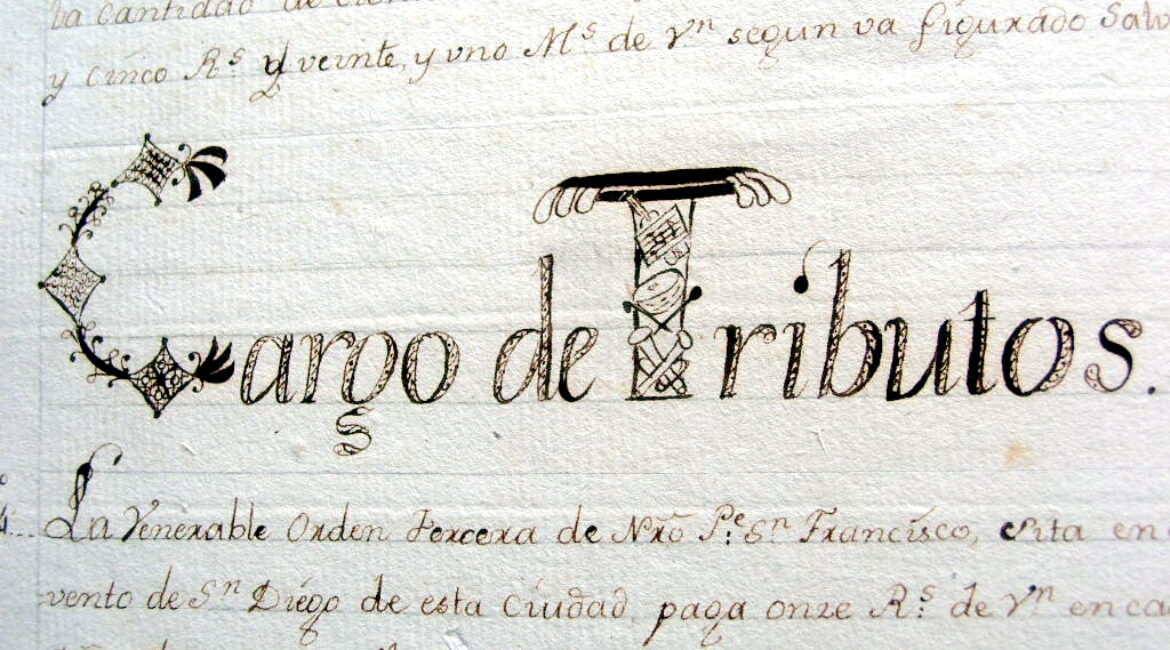 la cantidad de
y cinco R.s y veinte, y uno M.s de V.n segun va figurado Salv
Cargo de Tributos.
La Venerable Orden Tercera de Nro P.e S.n Francisco, sita en
vento de S.n Diego de esta Ciudad, paga onze R.s de V.n en ca